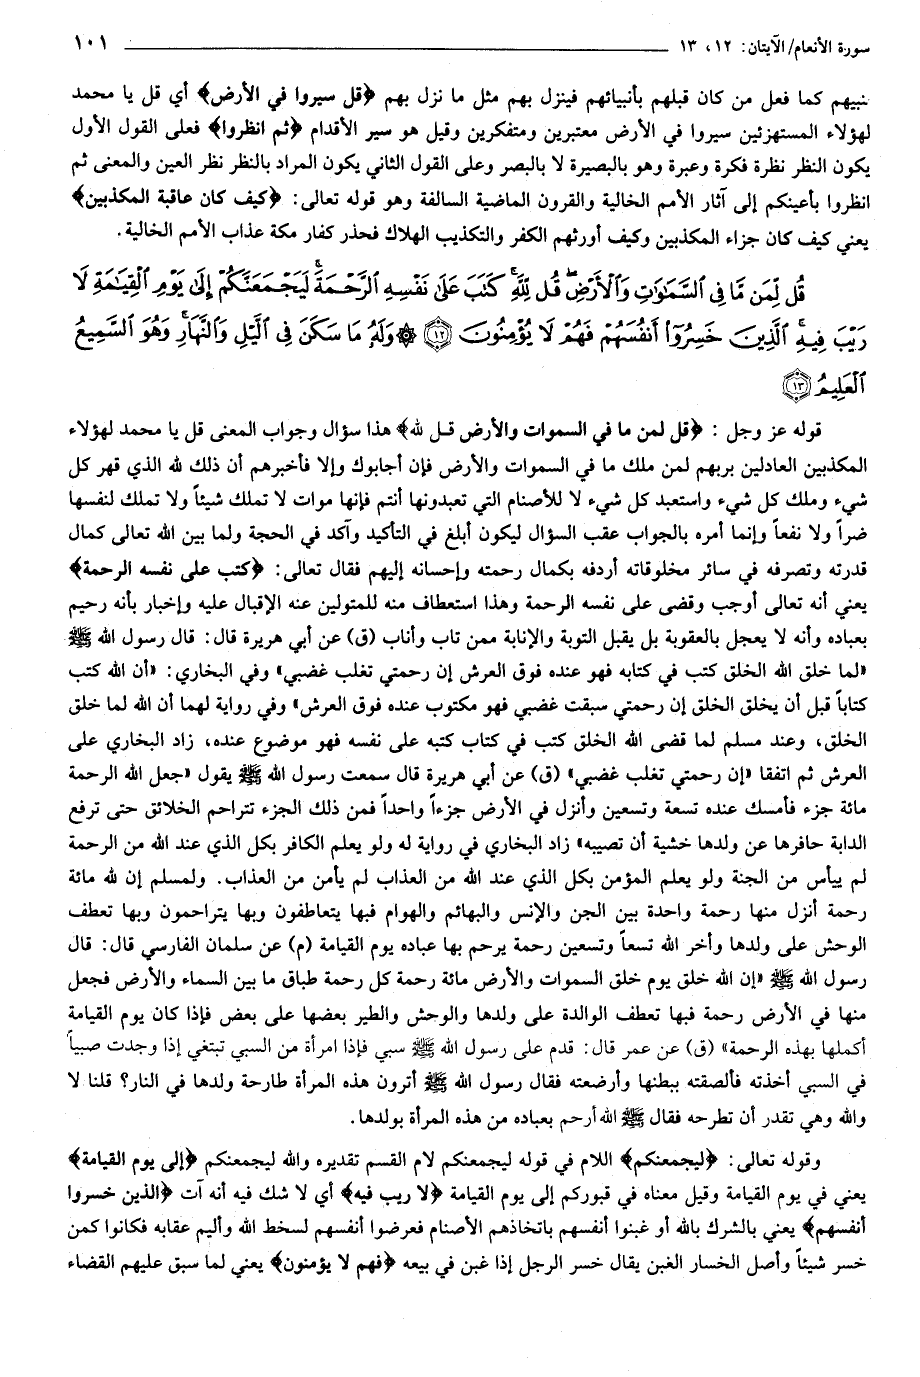 سورة الأنعام/الآيتان: ١٢، ١٣ ١٠١
نبيهم كما فعل من كان قبلهم بأنبيائهم فينزل بهم مثل ما نزل بهم ﴿قل سيروا في الأرض﴾ أي قل يا محمد
لهؤلاء المستهزئين سيروا في الأرض معتبرين ومتفكرين وقيل هو سير الأقدام ﴿ثم انظروا﴾ فعلى القول الأول
يكون النظر نظرة فكرة وعبرة وهو بالبصيرة لا بالبصر وعلى القول الثاني يكون المراد بالنظر نظر العين والمعنى ثم
انظروا بأعينكم إلى آثار الأمم الخالية والقرون الماضية السالفة وهو قوله تعالى: ﴿كيف كان عاقبة المكذبين﴾
يعني كيف كان جزاء المكذبين وكيف أورثهم الكفر والتكذيب الهلاك فحذر كفار مكة عذاب الأمم الخالية.
قُل لِّمَن مَّا فِى ٱلسَّمَٰوَٰتِ وَٱلْأَرْضِ ۖ قُل لِّلَّهِ ۚ كَتَبَ عَلَىٰ نَفْسِهِ ٱلرَّحْمَةَ ۚ لَيَجْمَعَنَّكُمْ إِلَىٰ يَوْمِ ٱلْقِيَٰمَةِ لَا
رَيْبَ فِيهِ ۚ ٱلَّذِينَ خَسِرُوٓا۟ أَنفُسَهُمْ فَهُمْ لَا يُؤْمِنُونَ ﴿١٢﴾ ۞ وَلَهُۥ مَا سَكَنَ فِى ٱلَّيْلِ وَٱلنَّهَارِ ۚ وَهُوَ ٱلسَّمِيعُ
ٱلْعَلِيمُ ﴿١٣﴾
قوله عز وجل : ﴿قل لمن ما في السموات والأرض قـل لله﴾ هذا سؤال وجواب المعنى قل يا محمد لهؤلاء
المكذبين العادلين بربهم لمن ملك ما في السموات والأرض فإن أجابوك وإلا فأخبرهم أن ذلك لله الذي قهر كل
شيء وملك كل شيء واستعبد كل شيء لا للأصنام التي تعبدونها أنتم فإنها موات لا تملك شيئاً ولا تملك لنفسها
ضراً ولا نفعاً وإنما أمره بالجواب عقب السؤال ليكون أبلغ في التأكيد وآكد في الحجة ولما بين الله تعالى كمال
قدرته وتصرفه في سائر مخلوقاته أردفه بكمال رحمته وإحسانه إليهم فقال تعالى: ﴿كتب على نفسه الرحمة﴾
يعني أنه تعالى أوجب وقضى على نفسه الرحمة وهذا استعطاف منه للمتولين عنه الإقبال عليه وإخبار بأنه رحيم
بعباده وأنه لا يعجل بالعقوبة بل يقبل التوبة والإنابة ممن تاب وأناب (ق) عن أبي هريرة قال: قال رسول الله ﷺ
«لما خلق الله الخلق كتب في كتابه فهو عنده فوق العرش إن رحمتي تغلب غضبي» وفي البخاري: «أن الله كتب
كتاباً قبل أن يخلق الخلق إن رحمتي سبقت غضبي فهو مكتوب عنده فوق العرش» وفي رواية لهما أن الله لما خلق
الخلق، وعند مسلم لما قضى الله الخلق كتب في كتاب كتبه على نفسه فهو موضوع عنده، زاد البخاري على
العرش ثم اتفقا «إن رحمتي تغلب غضبي» (ق) عن أبي هريرة قال سمعت رسول الله ﷺ يقول «جعل الله الرحمة
مائة جزء فأمسك عنده تسعة وتسعين وأنزل في الأرض جزءاً واحداً فمن ذلك الجزء تتراحم الخلائق حتى ترفع
الدابة حافرها عن ولدها خشية أن تصيبه» زاد البخاري في رواية له ولو يعلم الكافر بكل الذي عند الله من الرحمة
لم ييأس من الجنة ولو يعلم المؤمن بكل الذي عند الله من العذاب لم يأمن من العذاب. ولمسلم إن لله مائة
رحمة أنزل منها رحمة واحدة بين الجن والإنس والبهائم والهوام فبها يتعاطفون وبها يتراحمون وبها تعطف
الوحش على ولدها وأخر الله تسعاً وتسعين رحمة يرحم بها عباده يوم القيامة (م) عن سلمان الفارسي قال: قال
رسول الله ﷺ «إن الله خلق يوم خلق السموات والأرض مائة رحمة كل رحمة طباق ما بين السماء والأرض فجعل
منها في الأرض رحمة فبها تعطف الوالدة على ولدها والوحش والطير بعضها على بعض فإذا كان يوم القيامة
أكملها بهذه الرحمة» (ق) عن عمر قال: قدم على رسول الله ﷺ سبي فإذا امرأة من السبي تبتغي إذا وجدت صبياً
في السبي أخذته فألصقته ببطنها وأرضعته فقال رسول الله ﷺ أترون هذه المرأة طارحة ولدها في النار؟ قلنا لا
والله وهي تقدر أن تطرحه فقال ﷺ الله أرحم بعباده من هذه المرأة بولدها.
وقوله تعالى: ﴿ليجمعنكم﴾ اللام في قوله ليجمعنكم لام القسم تقديره والله ليجمعنكم ﴿إلى يوم القيامة﴾
يعني في يوم القيامة وقيل معناه في قبوركم إلى يوم القيامة ﴿لا ريب فيه﴾ أي لا شك فيه أنه آت ﴿الذين خسروا
أنفسهم﴾ يعني بالشرك بالله أو غبنوا أنفسهم باتخاذهم الأصنام فعرضوا أنفسهم لسخط الله وأليم عقابه فكانوا كمن
خسر شيئاً وأصل الخسار الغبن يقال خسر الرجل إذا غبن في بيعه ﴿فهم لا يؤمنون﴾ يعني لما سبق عليهم القضاء